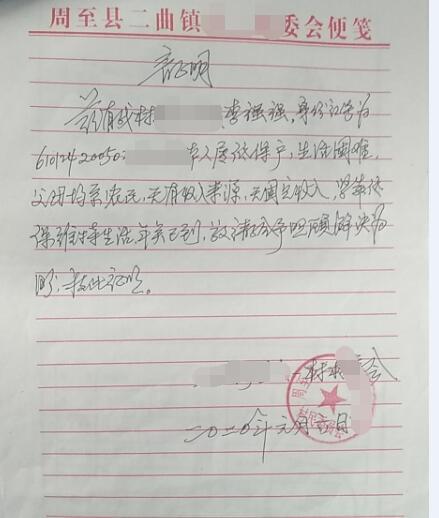 周至县二曲镇 委会便笺
证明
兹有我村 李强强，身份证号为
61012420050 本人属低保户，生活困难，
父母均系农民，无有收入来源，无固定收入，靠低
保维持生活，年关已到，敬请给予照顾解决为
盼，特此证明。
村 会
二〇二〇年元月 日
周至 村民委员会